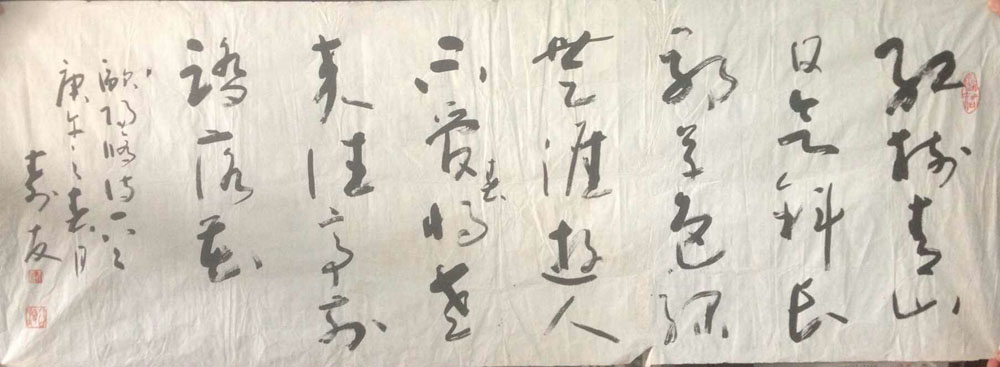 红树青山
日欲斜长
郊草色绿
无涯游人
不管春将老
来往亭前
踏落花
欧阳修诗一首
庚午之春月
寿友